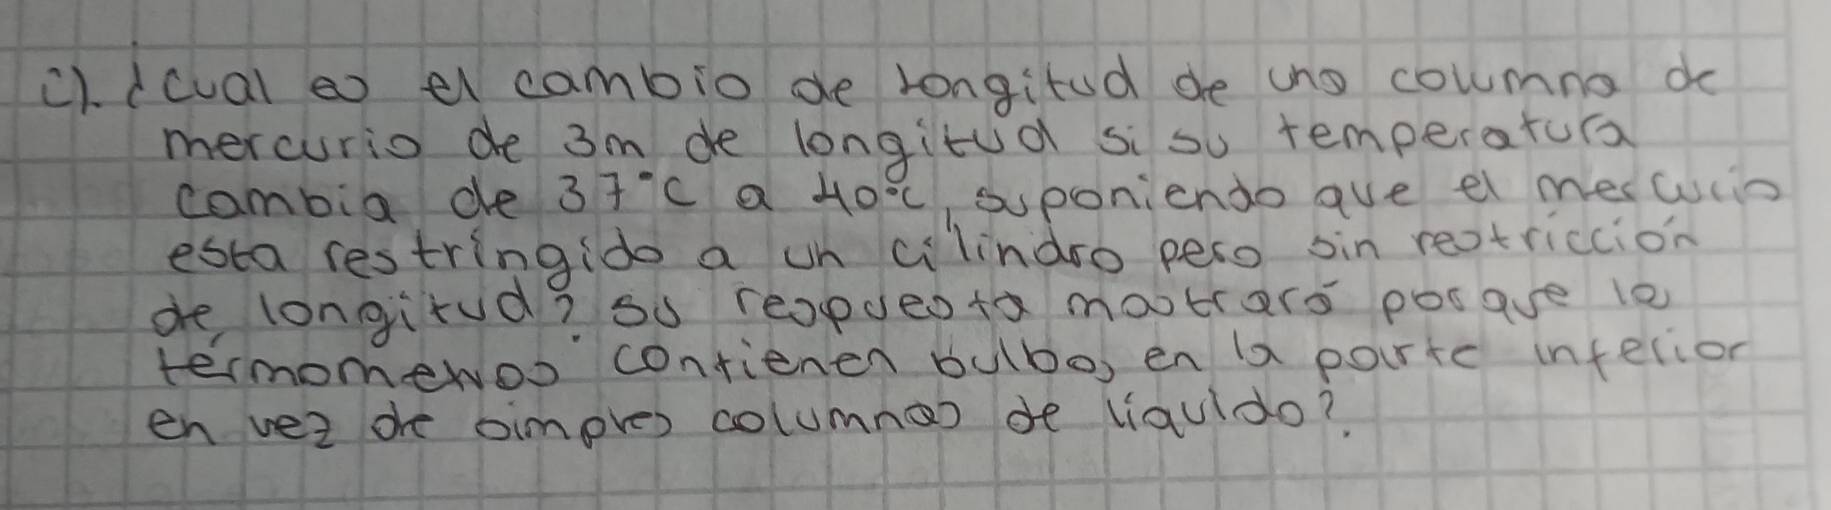 c). ¿cual es el cambio de longitud de una columna de
mercurio de 3m de longitud si su temperatura
cambia de 37°C a 40°C, suponiendo que el mercurio
esta restringido a un cilindro pero sin restricción
de longitud? su respuesta mostrará porque le
térmometros contienen bulbos en la parte inferior
en vez de simples columnas de liquido?